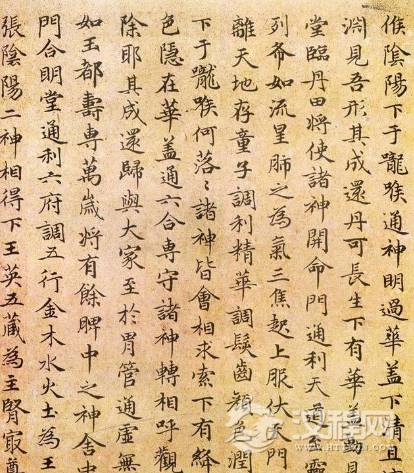 候陰陽下于嚨喉通神明過華蓋下清且
淵見吾形其成還丹可長生下有華蓋動見
堂臨丹田將使諸神開命門通利天道至靈
列布如流星肺之為氣三焦起上服伏天門
離天地存童子調利精華調髮齒顏色潤
下于嚨喉何落〻諸神皆會相求索下有絳
色隱在華蓋通六合專守諸神轉相呼觀
除耶其成還歸與大家至於胃管通虛無
如玉都壽專萬歲將有餘脾中之神舍中
門合明堂通利六府調五行金木水火土為王
張陰陽二神相得下玉英五藏為主腎最尊
汉程网